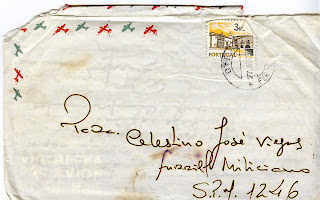 3$
PORTUGAL
Para.
Celestino José Viegas
furriel Miliciano
S.P.M. 1246